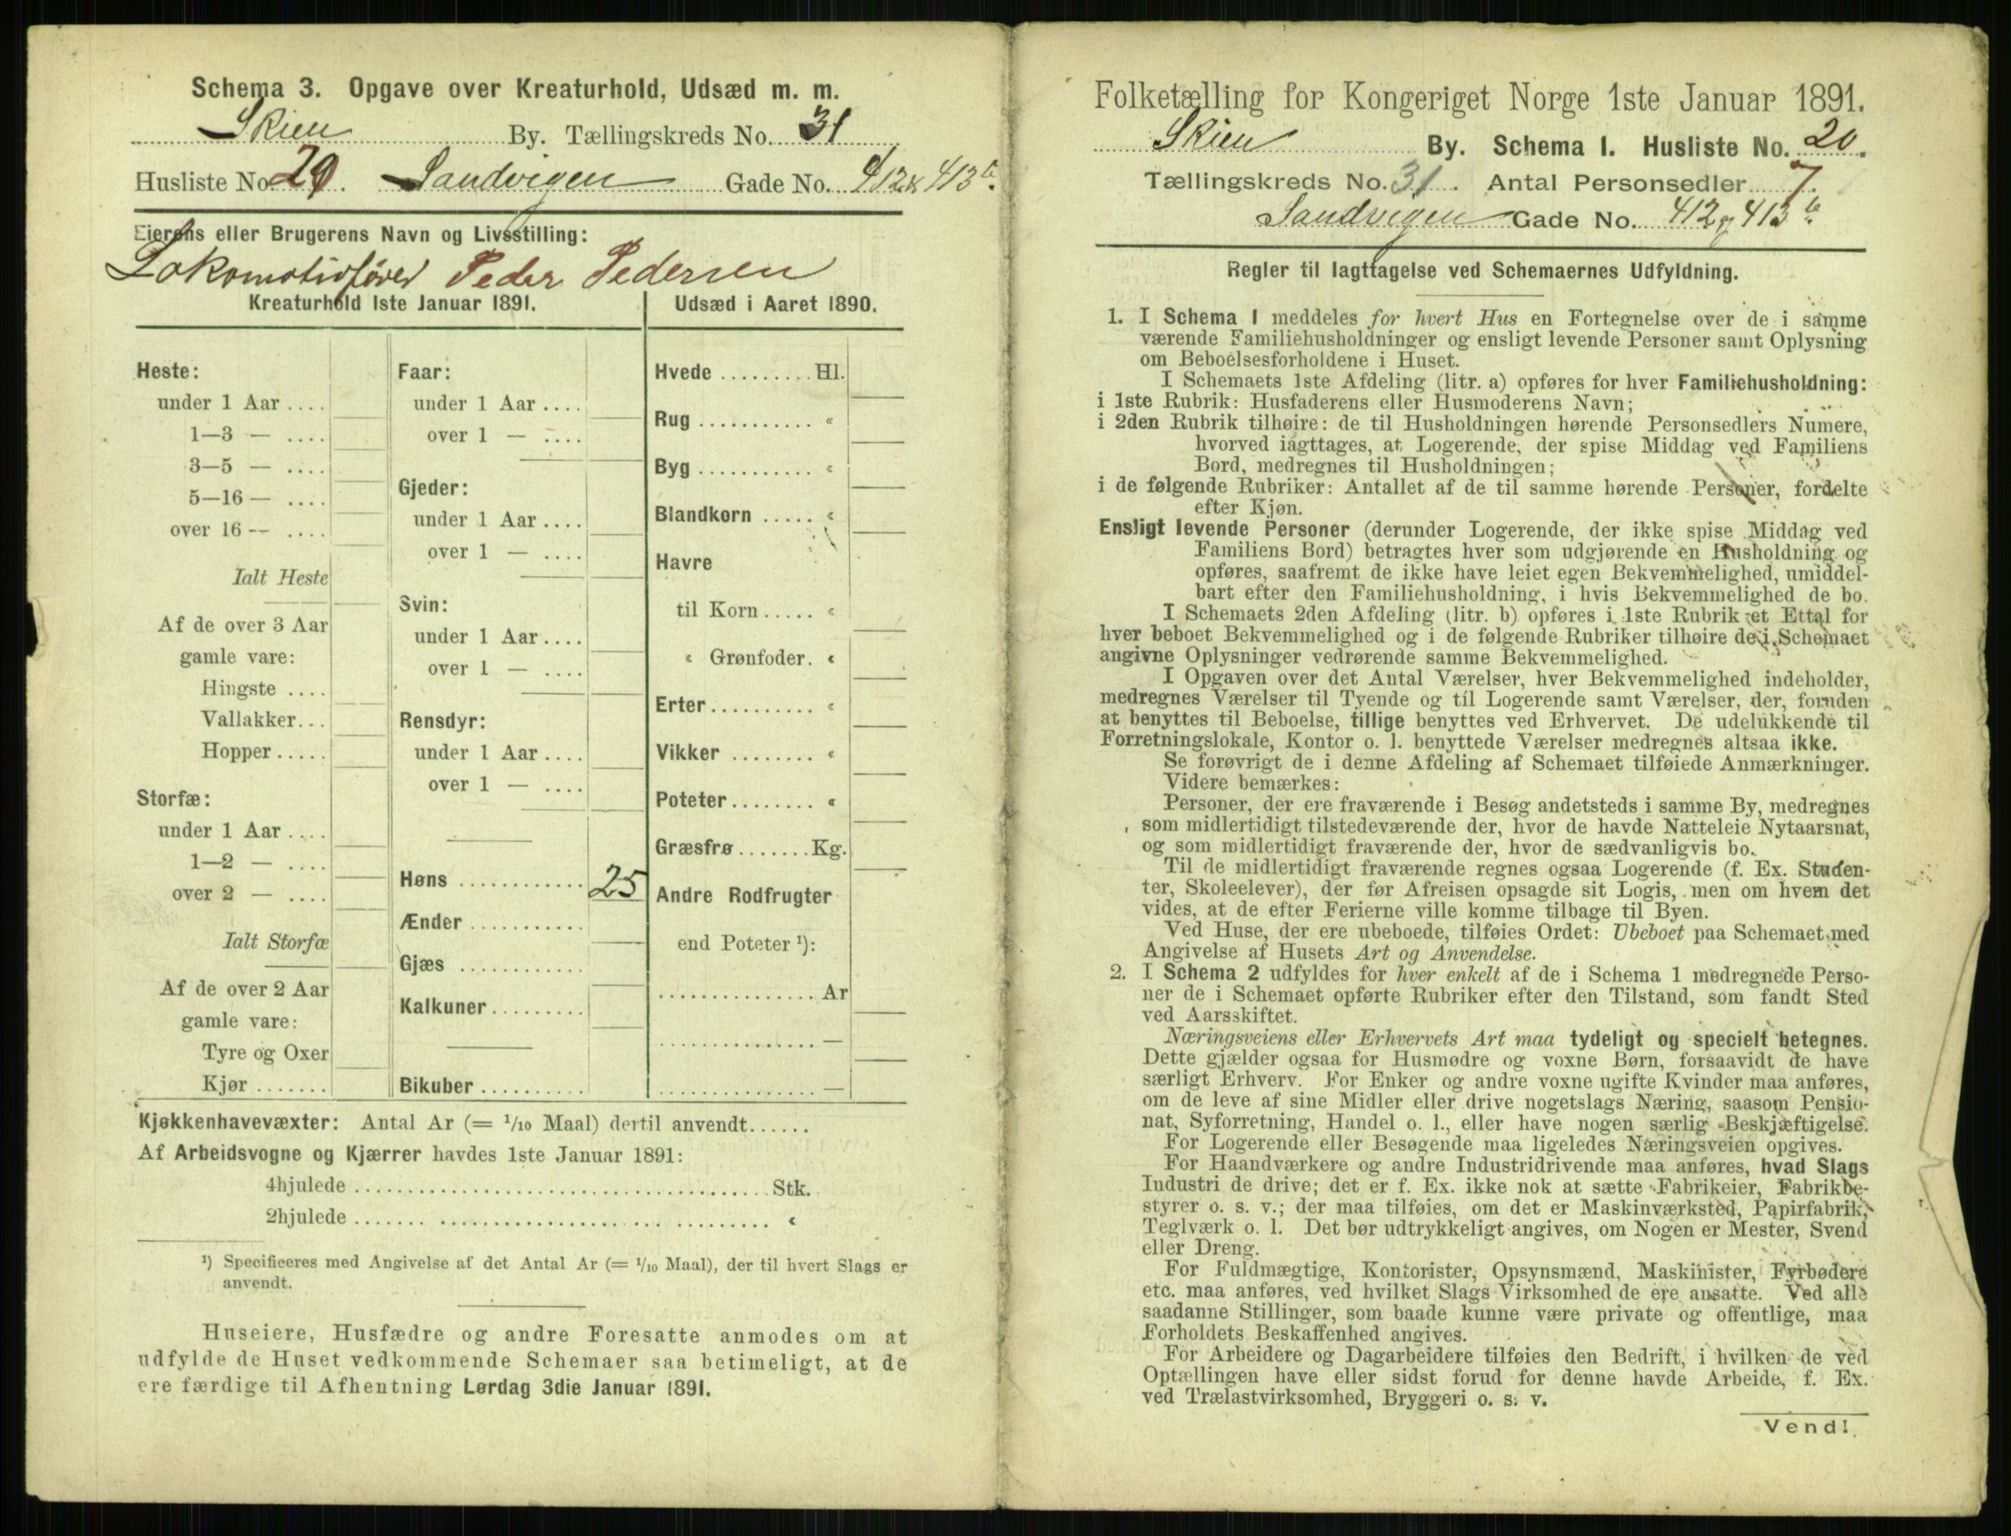 Schema 3. Opgave over Kreaturhold, Udsæd m. m.
Skien By. Tællingskreds No. 31
Husliste No. 20. Sandvigen Gade No. 412 & 413b.
Eierens eller Brugerens Navn og Livsstilling:
Lokomotivfører Peder Pedersen
Kreaturhold 1ste Januar 1891.
Heste:
under 1 Aar ....
1—3 — ....
3—5 — ....
5—16 — ....
over 16 — ....
Ialt Heste
Af de over 3 Aar
gamle vare:
Hingste ....
Vallakker...
Hopper .....
Storfæ:
under 1 Aar ....
1—2 — ....
over 2 — ....
Ialt Storfæ
Af de over 2 Aar
gamle vare:
Tyre og Oxer
Kjør .......
Faar:
under 1 Aar ....
over 1 — ....
Gjeder:
under 1 Aar ....
over 1 — ....
Svin:
under 1 Aar ....
over 1 — ....
Rensdyr:
under 1 Aar ....
over 1 — ....
Høns ............ 25
Ænder ...........
Gjæs ............
Kalkuner.........
Bikuber ..........
Udsæd i Aaret 1890.
Hvede ......... Hl.
Rug ........... «
Byg ........... «
Blandkorn ..... «
Havre
til Korn ..... «
« Grønfoder. «
Erter.......... «
Vikker ........ «
Poteter........ «
Græsfrø ....... Kg.
Andre Rodfrugter
end Poteter ¹):
............... Ar
............... —
............... —
Kjøkkenhavevæxter: Antal Ar (= 1/10 Maal) dertil anvendt......
Af Arbeidsvogne og Kjærrer havdes 1ste Januar 1891:
4hjulede ...................................... Stk.
2hjulede ....... ...................... ......... «
¹) Specificeres med Angivelse af det Antal Ar (= 1/10 Maal), der til hvert Slags er
anvendt.
Huseiere, Husfædre og andre Foresatte anmodes om at
udfylde de Huset vedkommende Schemaer saa betimeligt, at de
ere færdige til Afhentning Lørdag 3die Januar 1891.
Folketælling for Kongeriget Norge 1ste Januar 1891.
Skien By. Schema I. Husliste No. 20.
Tællingskreds No. 31. Antal Personsedler 7.
Sandvigen Gade No. 412 og 413b
Regler til Iagttagelse ved Schemaernes Udfyldning.
1. I Schema I meddeles for hvert Hus en Fortegnelse over de i samme
værende Familiehusholdninger og ensligt levende Personer samt Oplysning
om Beboelsesforholdene i Huset.
I Schemaets 1ste Afdeling (litr. a) opføres for hver Familiehusholdning:
i 1ste Rubrik: Husfaderens eller Husmoderens Navn;
i 2den Rubrik tilhøire: de til Husholdningen hørende Personsedlers Numere,
hvorved iagttages, at Logerende, der spise Middag ved Familiens
Bord, medregnes til Husholdningen;
i de følgende Rubriker: Antallet af de til samme hørende Personer, fordelte
efter Kjøn.
Ensligt levende Personer (derunder Logerende, der ikke spise Middag ved
Familiens Bord) betragtes hver som udgjørende en Husholdning og
opføres, saafremt de ikke have leiet egen Bekvemmelighed, umiddel-
bart efter den Familiehusholdning, i hvis Bekvemmelighed de bo.
I Schemaets 2den Afdeling (litr. b) opføres i 1ste Rubrik et Ettal for
hver beboet Bekvemmelighed og i de følgende Rubriker tilhøire de i Schemaet
angivne Oplysninger vedrørende samme Bekvemmelighed.
I Opgaven over det Antal Værelser, hver Bekvemmelighed indeholder,
medregnes Værelser til Tyende og til Logerende samt Værelser, der, foruden
at benyttes til Beboelse, tillige benyttes ved Erhvervet. De udelukkende til
Forretningslokale, Kontor o. l. benyttede Værelser medregnes altsaa ikke.
Se forøvrigt de i denne Afdeling af Schemaet tilføiede Anmærkninger.
Videre bemærkes:
Personer, der ere fraværende i Besøg andetsteds i samme By, medregnes
som midlertidigt tilstedeværende der, hvor de havde Natteleie Nytaarsnat,
og som midlertidigt fraværende der, hvor de sædvanligvis bo.
Til de midlertidigt fraværende regnes ogsaa Logerende (f. Ex. Studen-
ter, Skoleelever), der før Afreisen opsagde sit Logis, men om hvem det
vides, at de efter Ferierne ville komme tilbage til Byen.
Ved Huse, der ere ubeboede, tilføies Ordet: Ubeboet paa Schemaet med
Angivelse af Husets Art og Anvendelse.
2. I Schema 2 udfyldes for hver enkelt af de i Schema 1 medregnede Perso-
ner de i Schemaet opførte Rubriker efter den Tilstand, som fandt Sted
ved Aarsskiftet.
Næringsveiens eller Erhvervets Art maa tydeligt og specielt betegnes.
Dette gjælder ogsaa for Husmødre og voxne Børn, forsaavidt de have
særligt Erhverv. For Enker og andre voxne ugifte Kvinder maa anføres,
om de leve af sine Midler eller drive nogetslags Næring, saasom Pensio-
nat, Syforretning, Handel o. l., eller have nogen særlig Beskjæftigelse.
For Logerende eller Besøgende maa ligeledes Næringsveien opgives.
For Haandværkere og andre Industridrivende maa anføres, hvad Slags
Industri de drive; det er f. Ex. ikke nok at sætte Fabrikeier, Fabrikbe-
styrer o. s. v.; der maa tilføies, om det er Maskinværksted, Papirfabrik,
Teglværk o. l. Det bør udtrykkeligt angives, om Nogen er Mester, Svend
eller Dreng.
For Fuldmægtige, Kontorister, Opsynsmænd, Maskinister, Fyrbødere
etc. maa anføres, ved hvilket Slags Virksomhed de ere ansatte. Ved alle
saadanne Stillinger, som baade kunne være private og offentlige, maa
Forholdets Beskaffenhed angives.
For Arbeidere og Dagarbeidere tilføies den Bedrift, i hvilken de ved
Optællingen have eller sidst forud for denne havde Arbeide, f. Ex.
ved Trælastvirksomhed, Bryggeri o. s. v.
Vend!